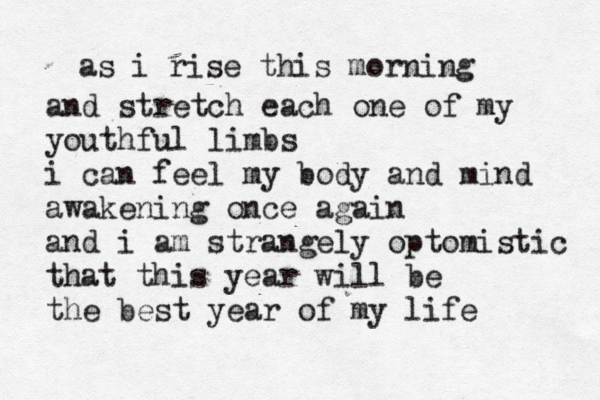 as i rise this morning
and stretch each one of my
youthful limbs
i can feel my body and mind
awakening once again
and i am strangely optomistic
that this year will be
the best year of my life